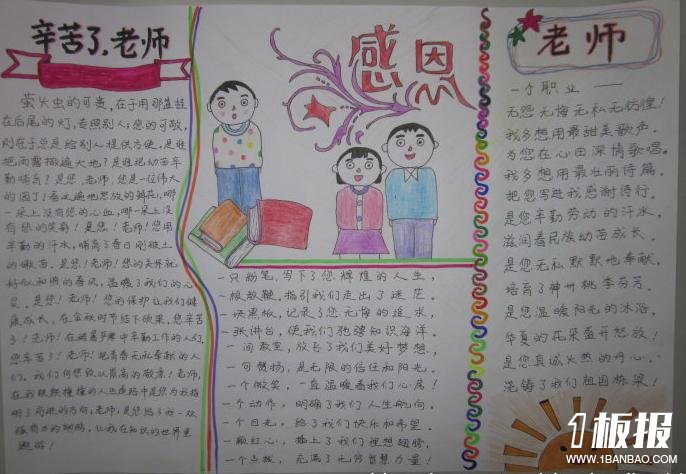 辛苦了,老师
萤火虫的可贵,在于用那盏挂
在后尾的灯,专照别人;您的可敬,
则在于总是给别人提供方便。是谁
把雨露撒遍大地?是谁把幼苗辛
勤哺育?是您,老师,您是一位伟大
的园丁!看这遍地怒放的鲜花,哪
一朵上没有您的心血,哪一朵上没
有您的笑影!是您!老师!您用
辛勤的汗水,哺育了春日刚破土
的嫩苗。是您!老师!您的关怀就
好似和煦的春风,温暖了我们的心
灵。是您!老师!您的保护让我们健
康成长,在金秋时节结下硕果。您辛苦
了!老师!在暑中辛勤工作的人们,
您辛苦了!老师!把青春无私奉献的人
们,我们向您致以最高的敬意!老师,
在我的人生道路中是您为我指
明了前进的方向;老师,是您给了我一双
强有力的翅膀,让我在知识的世界里
遨游!
感恩
一只粉笔,写下了您辉煌的人生,
一根教鞭,指引我们走出了迷茫。
一块黑板,记录了您无悔的追求,
一张讲台,使我们驰骋知识海洋。
一间教室,放飞了我们美好梦想,
一句赞扬,是无限的信任和阳光。
一个微笑,一直温暖着我们心房!
一个动作,明确了我们人生航向,
一个目光,给了我们快乐和希望。
一颗红心,插上了我们理想翅膀,
一个点拨,充满了无穷智慧力量!
老师
一个职业——
无怨无悔无私无彷徨!
我多想用最甜美歌声,
为您在心田深情歌唱。
我多想用最壮丽诗篇,
把您写进我感谢诗行。
是您辛勤劳动的汗水,
滋润着民族幼苗成长。
是您无私默默地奉献,
培育了神州桃李芬芳。
是您温暖阳光的沐浴,
华夏的花朵盛开怒放!
是您真诚火热的丹心,
浇铸了我们祖国栋梁!
1板报
WWW.1BANBAO.COM